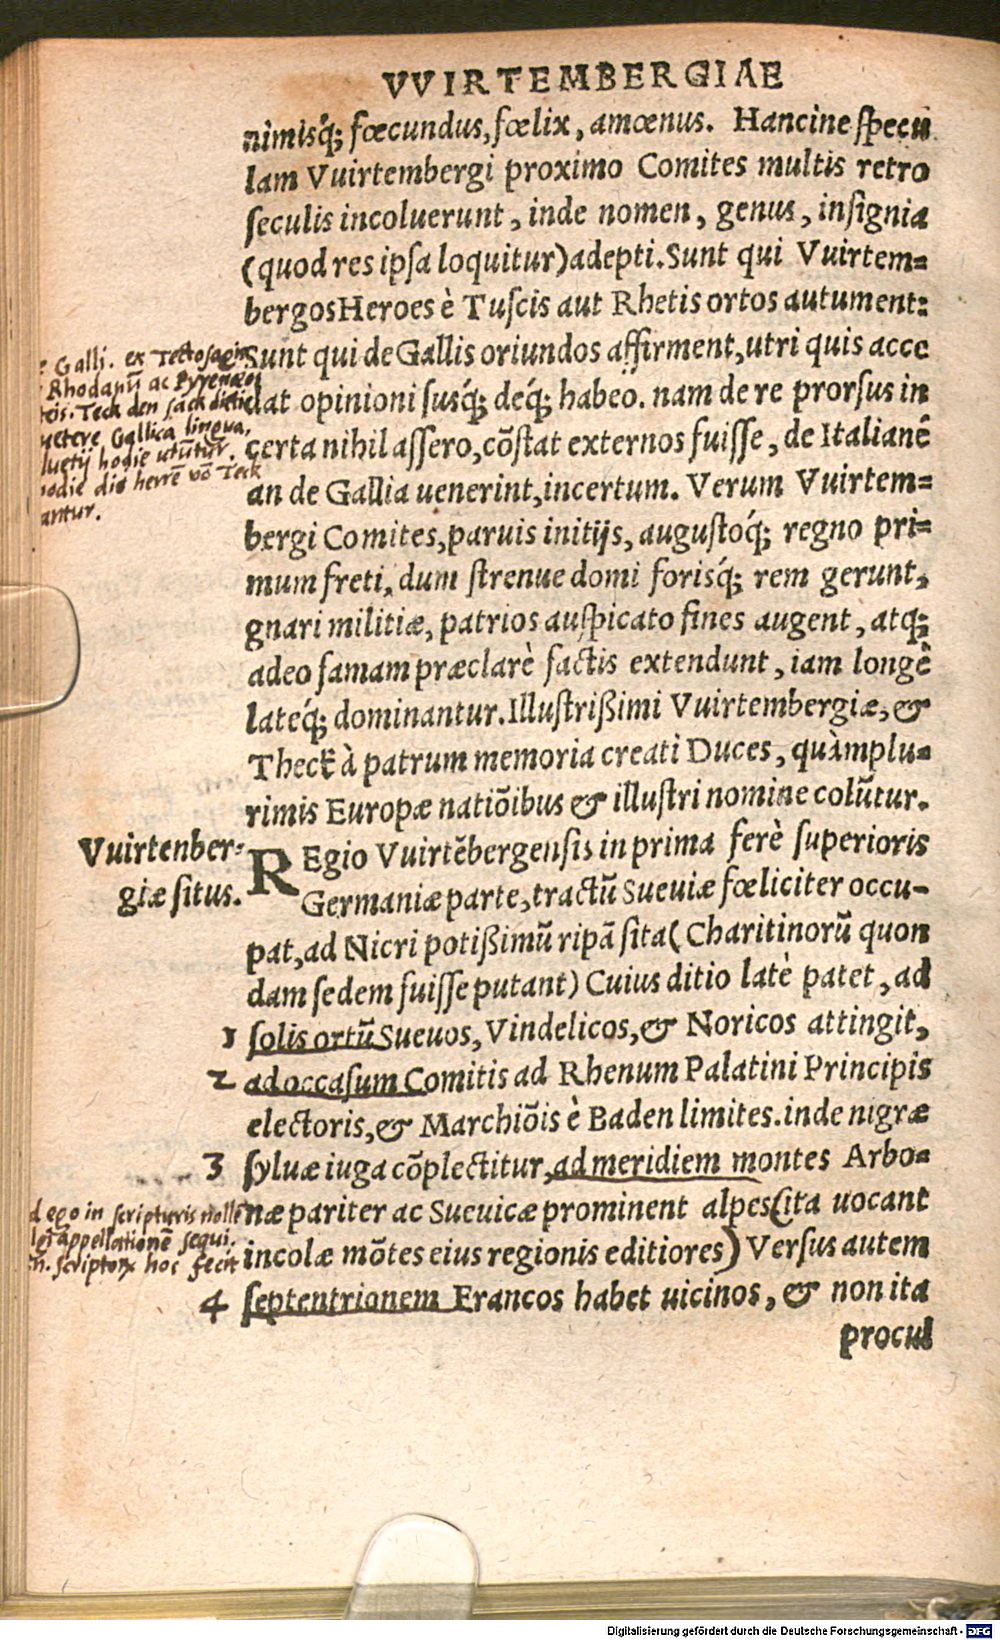 VVIRTEMBERGIAE
nimisq́; fœcundus, fœlix, amœnus. Hancine specu
lam Vuirtembergi proximo Comites multis retro
seculis incoluerunt, inde nomen, genus, insignia
(quod res ipsa loquitur) adepti. Sunt qui Vuirtem=
bergos Heroes è Tuscis aut Rhetis ortos autument:
Sunt qui de Gallis oriundos affirment, utri quis acce
dat opinioni susq́; deq́; habeo. nam de re prorsus in
certa nihil assero, cōstat externos fuisse, de Italia nē
an de Gallia uenerint, incertum. Verum Vuirtem=
bergi Comites, paruis initijs, augustoq́; regno pri=
mum freti, dum strenue domi forisq́; rem gerunt,
gnari militiæ, patrios auspicato fines augent, atq;
adeo famam præclarè factis extendunt, iam longè
lateq́; dominantur. Illustrißimi Vuirtembergiæ, &
Theck à patrum memoria creati Duces, quàmplu=
rimis Europæ natiōibus & illustri nomine colūtur.
Vuirtenber=
giæ situs.
REgio Vuirtēbergensis in prima ferè superioris
Germaniæ parte, tractū Sueuiæ fœliciter occu=
pat, ad Nicri potißimū ripā sita (Charitinorū quon
dam sedem fuisse putant) Cuius ditio latè patet, ad
1 solis ortū Sueuos, Vindelicos, & Noricos attingit,
2 ad occasum Comitis ad Rhenum Palatini Principis
electoris, & Marchiōis è Baden limites. inde nigræ
3 syluæ iuga cōplectitur, ad meridiem montes Arbo=
næ pariter ac Sueuicæ prominent alpes (ita uocant
incolæ mōtes eius regionis editiores) Versus autem
4 septentrionem Francos habet uicinos, & non ita
procul
Galli. ex Tectosagis
Rhodanū ac Pyrenæos
Teck den sack
uetere Gallica lingua,
hodie utūtur.
hodie die herrē vō Teck
antur.
ego in scripturis nolle
appellationē sequi.
hoc fecit
Digitalisierung gefördert durch die Deutsche Forschungsgemeinschaft - DFG